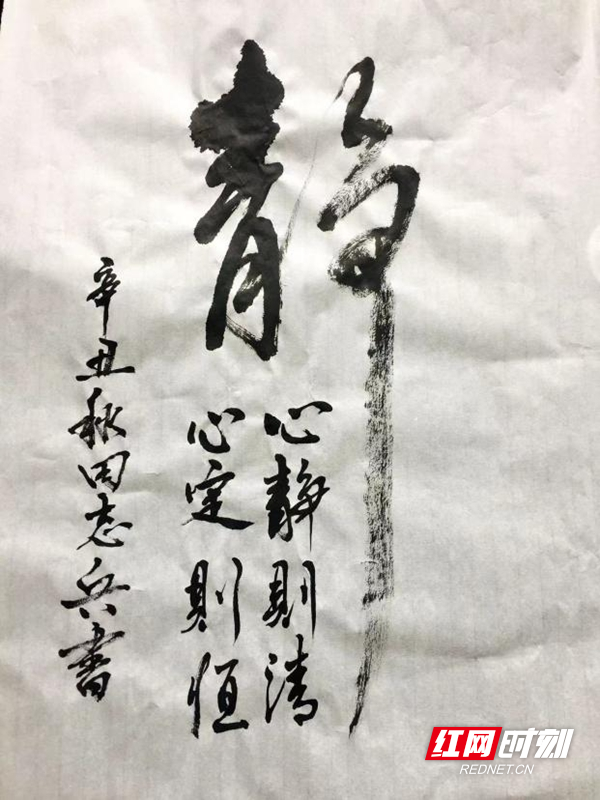 静
心静则清
心定则恒
辛丑秋田志兵书
红网时刻
REDNET.CN